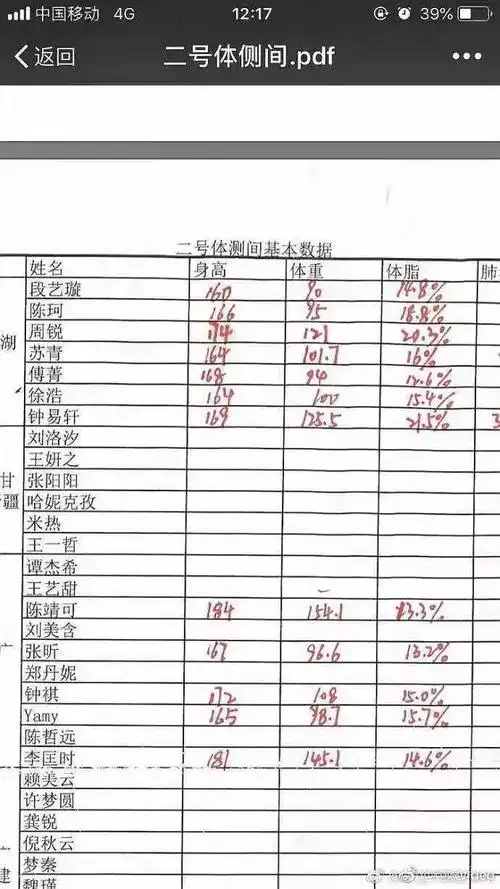 中国移动 4G 12:17 39%
返回 二号体侧间.pdf
二号体测间基本数据
姓名 身高 体重 体脂 肺
段艺璇 160 90 14.8%
陈珂 166 95 18.8%
周锐 174 121 20.3%
湖
苏青 164 101.7 16%
傅菁 168 94 12.6%
徐浩 164 100 15.4%
钟易轩 169 125.5 21.5% 3
刘洛汐
王妍之
甘 张阳阳
疆 哈妮克孜
米热
王一哲
谭杰希
王艺甜
陈靖可 184 154.1 13.3%
刘美含
广 张昕 167 96.6 13.2%
郑丹妮
钟祺 172 108 15.0%
Yamy 165 98.7 15.7%
陈哲远
李匡时 181 145.1 14.6%
赖美云
许梦圆
龚锐
倪秋云
建 梦秦
魏瑾